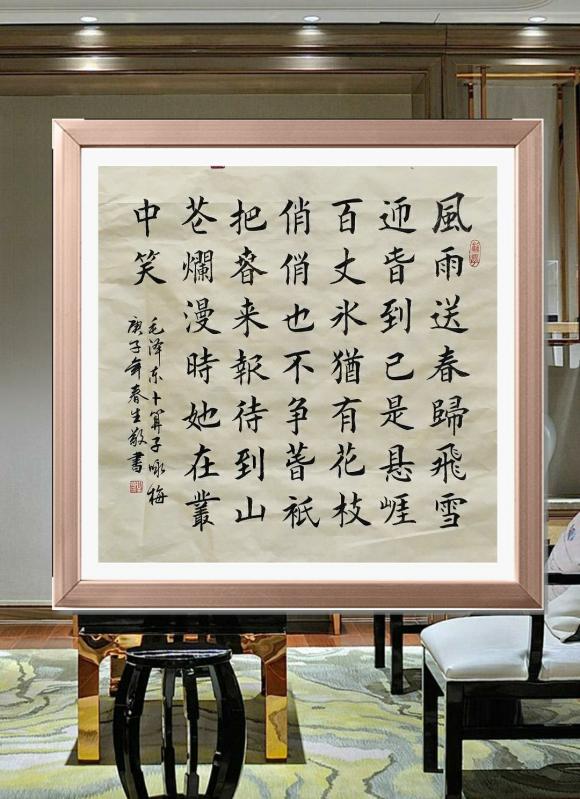 風雨送春歸飛雪
迎旾到已是悬崕
百丈氷猶有花枝
俏俏也不争萅祇
把萅来報待到山
芲爛漫時她在叢
中笑
毛泽东卜算子咏梅
庚子年春生敬書